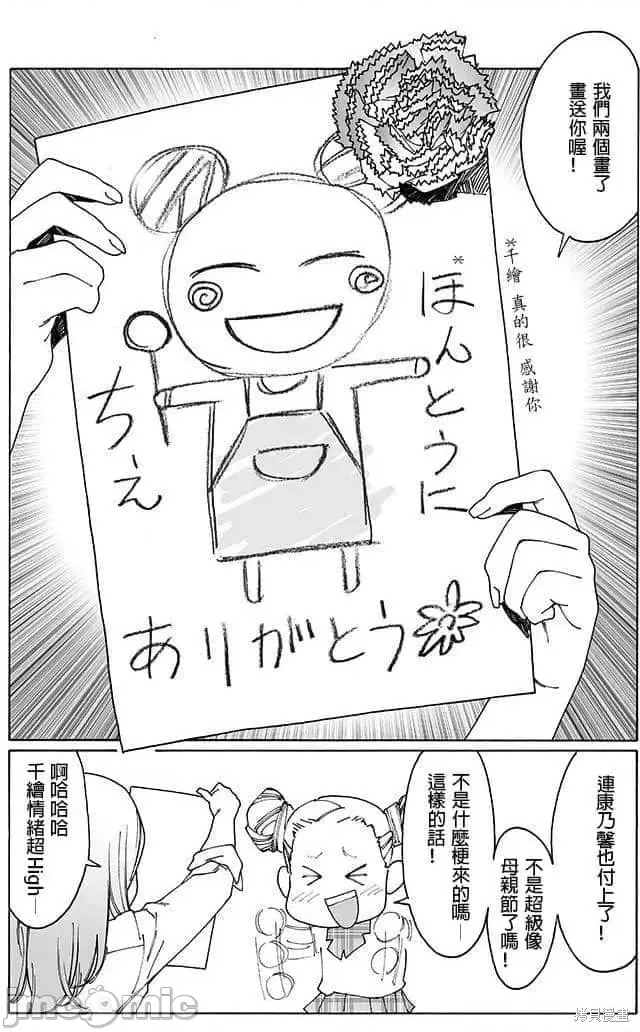 我們兩個畫了
畫送你喔！
*千繪 真的很 感謝你
*ほんとうに
ちえ
ありがとう
連康乃馨也付上了！
不是超級像
母親節了嗎！
不是什麼梗來的嗎—
這樣的話！
啊哈哈哈
千繪情緒超High—
jmcomic
拷貝漫畫